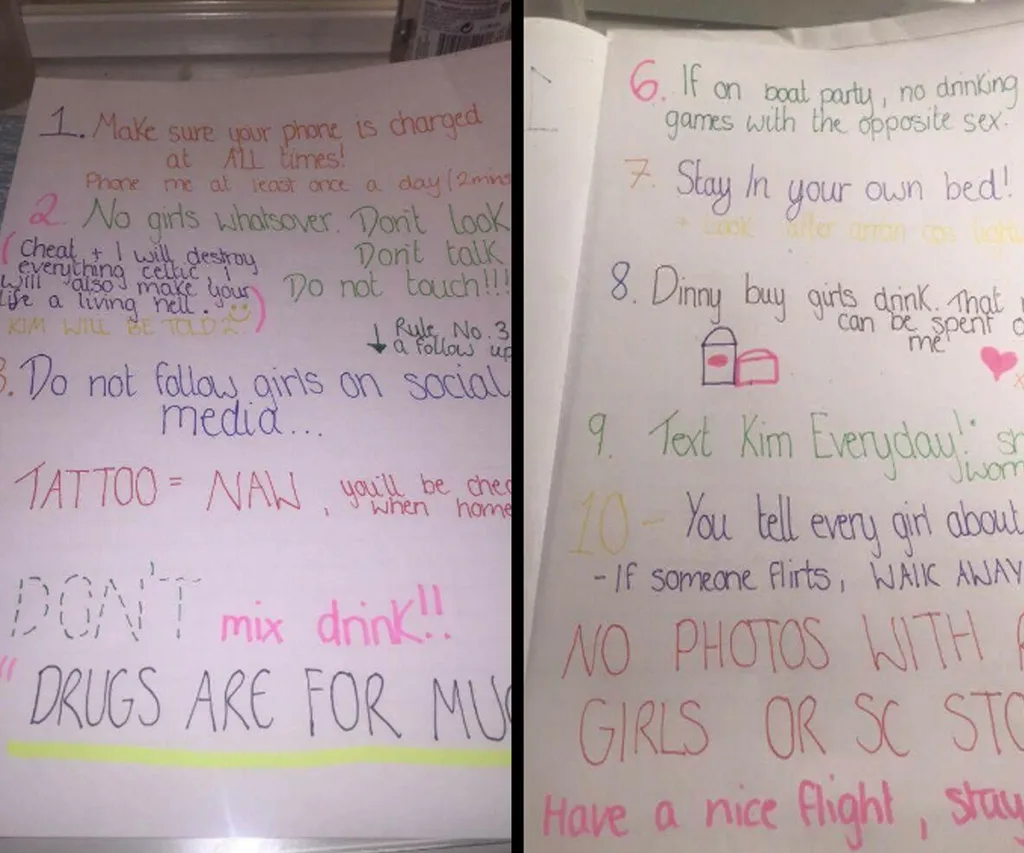 1. Make sure your phone is charged
at ALL times!
Phone me at least once a day (2mins
2. No girls whatsover. Don't look
Don't talk
Do not touch!!!
(Cheat + I will destroy
everything celtic, I
will also make your
life a living hell.)
KIM WILL BE TOLD
↓ Rule No. 3
a follow up
3. Do not follow girls on social
media...
TATTOO = NAW, you'll be chec
when home
DON'T mix drink!!
" DRUGS ARE FOR MUG
6. If on boat party, no drinking
games with the opposite sex.
7. Stay In your own bed!
+ Look after arran
8. Dinny buy girls drink. That
can be spent o
me
9. Text Kim Everyday!
wom
10 - You tell every girl about
- If someone flirts, WALK AWAY
NO PHOTOS WITH
GIRLS OR SC STO
Have a nice flight, stay